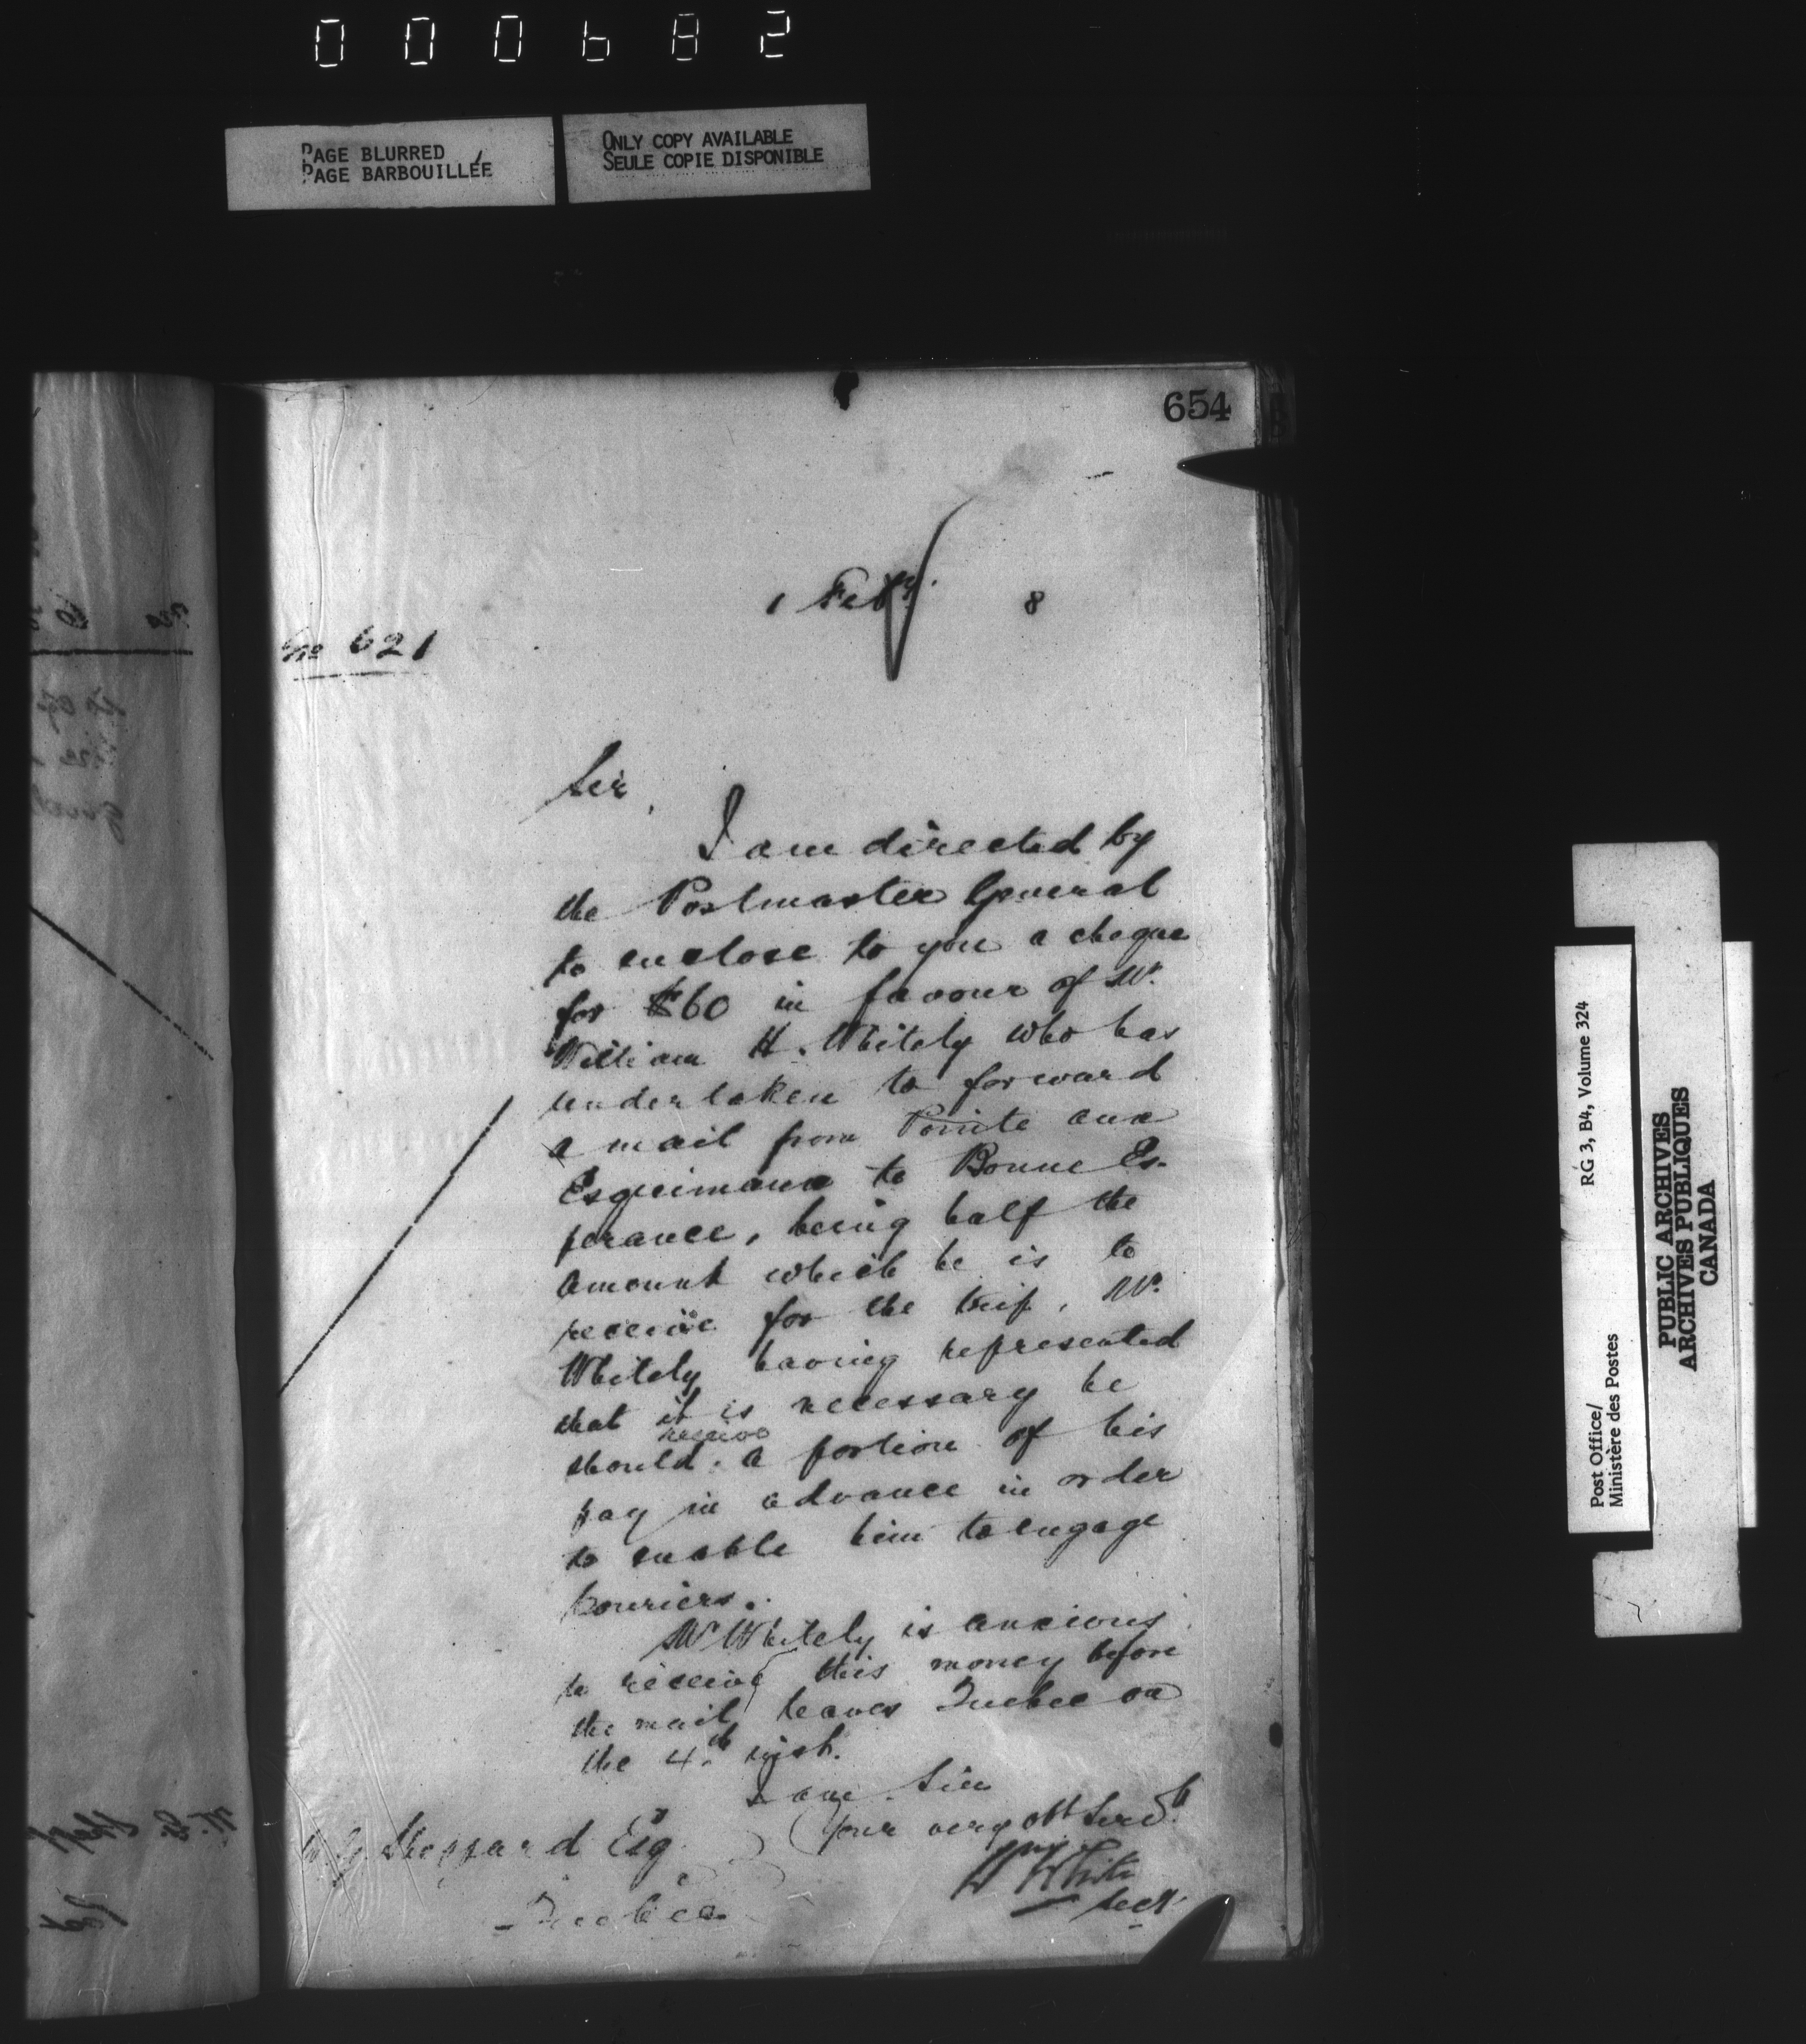 000682
PAGE BLURRED
PAGE BARBOUILLÉE
ONLY COPY AVAILABLE
SEULE COPIE DISPONIBLE
654
1 Feby. 8
No 621
Sir,
I am directed by
the Postmaster General
to enclose to you a cheque
for $60 in favour of Mr.
William H. Whitely who has
undertaken to forward
a mail from Pointe aux
Esquimaux to Bonne Es-
perance, being half the
amount which he is to
receive for the trip, Mr.
Whitely having represented
that it is necessary he
should receive a portion of his
pay in advance in order
to enable him to engage
couriers.
Mr Whitely is anxious
to receive this money before
the mail leaves Quebec on
the 4th inst.
I am Sir
Your very obt Servt
Wm White
Secy
W. G. Sheppard Esqr
Quebec
Post Office/
Ministère des Postes
RG 3, B4, Volume 324
PUBLIC ARCHIVES
ARCHIVES PUBLIQUES
CANADA